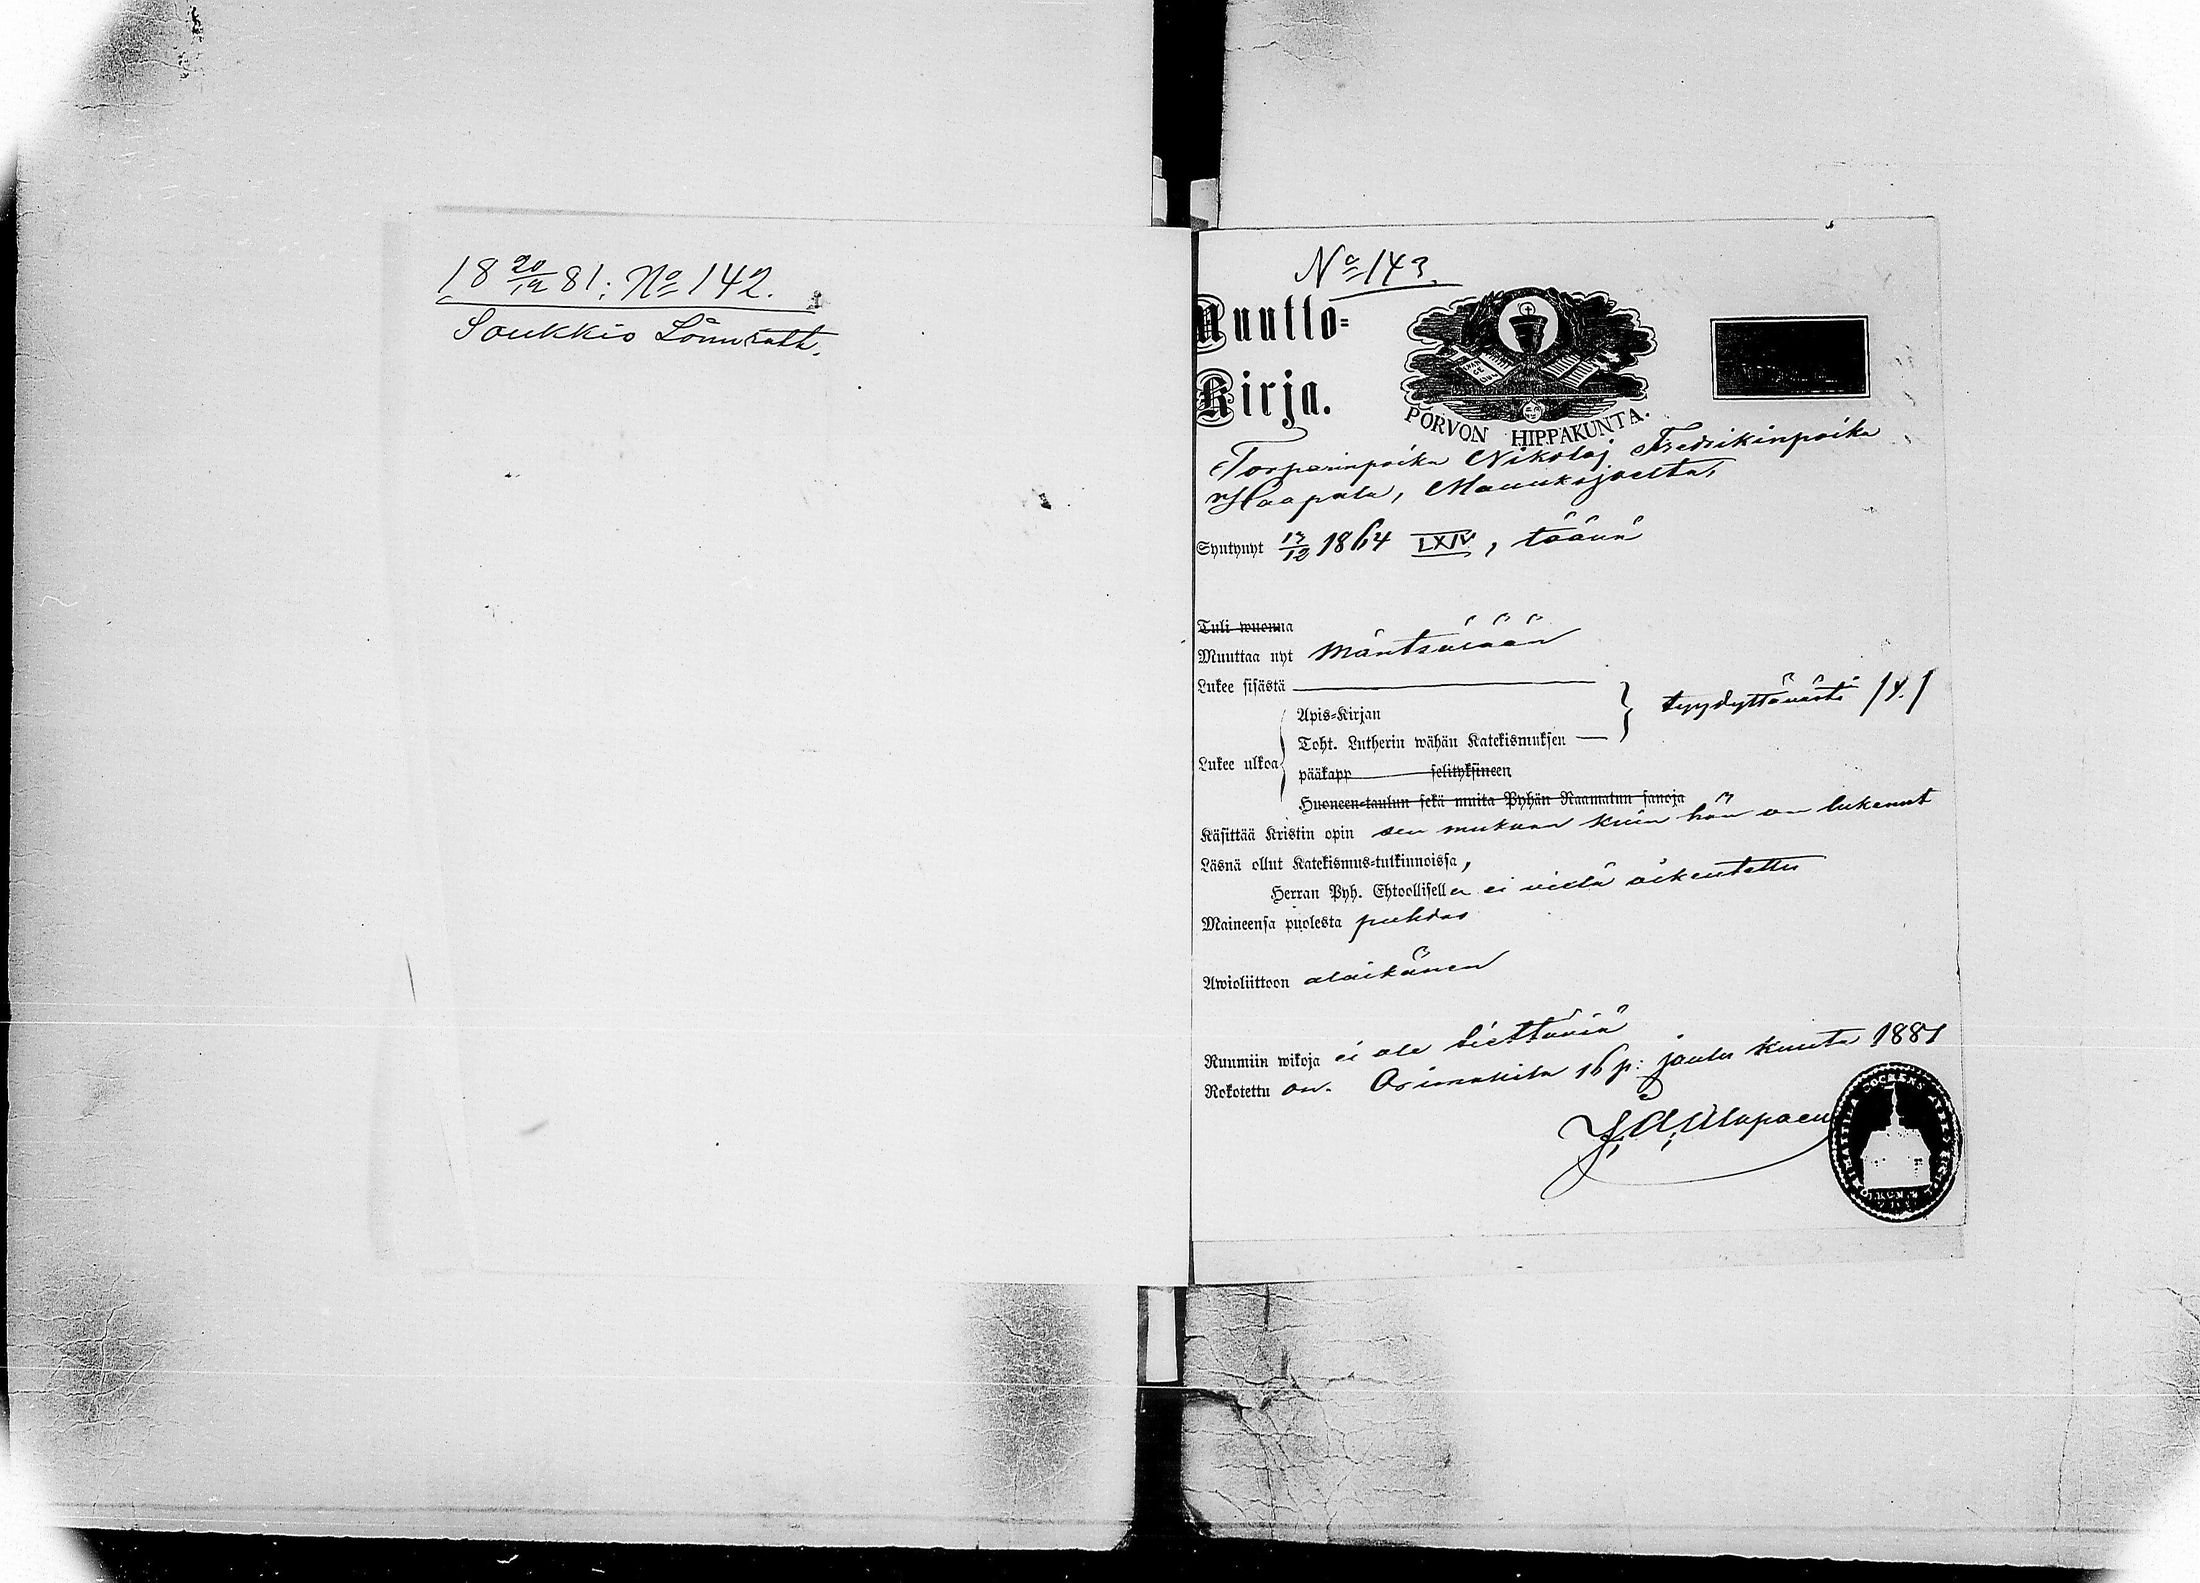 18 20/12 81; No 142.
Soukkio Lönnrott.
No 143.
Muutto=
Kirja.
PORVON HIPPAKUNTA.
Torparinpoika Nikolaj Fredrikinpoika
Haapala, Maunukujoelta,
Syntynyt 13/12 1864 LXIV, täänä
Tuli wuonna
Muuttaa nyt Mäntsälään
Lukee sisästä
Apis=Kirjan
tyydyttävästi /4./
Toht. Lutherin wähän Katekismuksen
Lukee ulkoa
pääkapp selityksineen
Huoneen=taulun sekä muita Pyhän Raamatun sanoja
Käsittää Kristin opin sen mukaan kuin hän on lukenut
Läsnä ollut Katekismus=tutkinnoissa,
Herran Pyh. Ehtoollisella ei vielä oikeutettu
Maineensa puolesta puhdas
Awioliittoon alaikänen
Ruumiin wikoja ei ole tiettäviä
Rokotettu on. Orimattila 16 p: joulu kuuta 1881